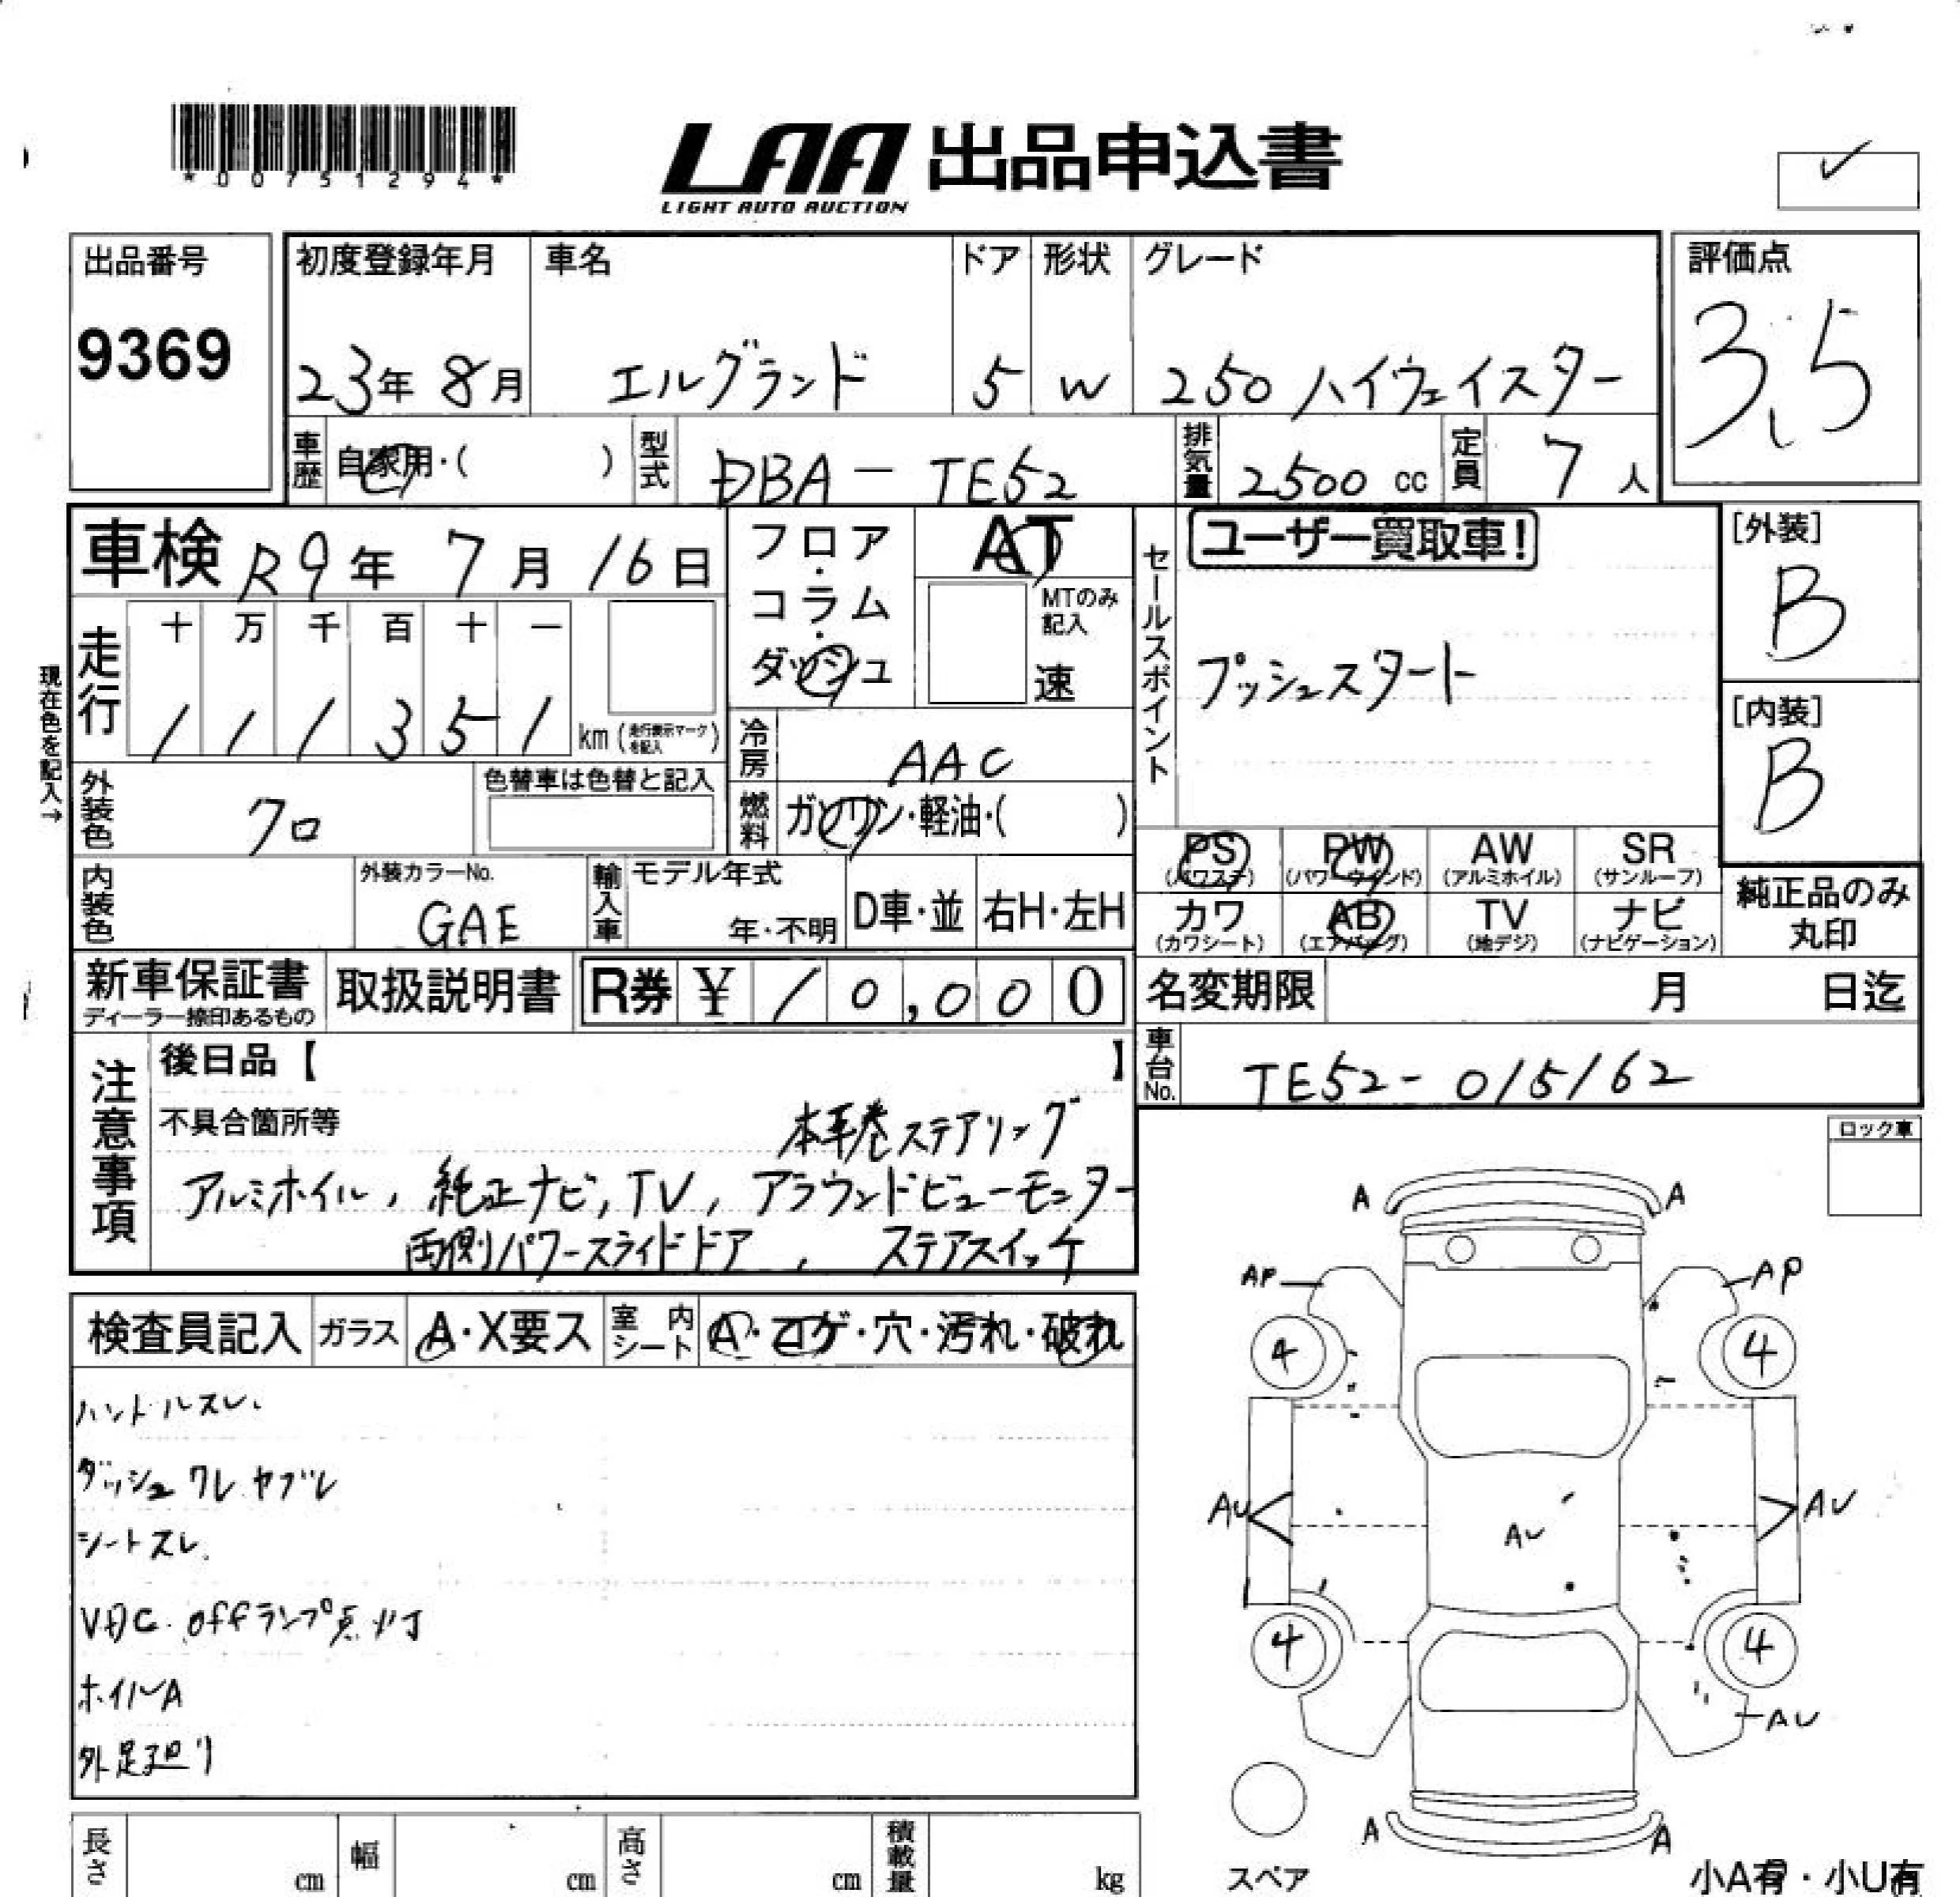 *00751294*
LAA 出品申込書
LIGHT AUTO AUCTION
✓
出品番号
9369
初度登録年月
23年 8月
車名
エルグランド
ドア
5
形状
W
グレード
250 ハイウェイスター
評価点
3.5
車歴
自家用・( )
型式
DBA-TE52
排気量
2500 cc
定員
7 人
車検 R9年 7月 16日
走行
十 万 千 百 十 一
1 1 1 3 5 1 km (走行表示マークを記入)
現在色を記入→
外装色
クロ
色替車は色替と記入
内装色
外装カラーNo.
GAE
輸入車
モデル年式
年・不明
D車・並
右H・左H
フロア・コラム・ダッシュ
AT
MTのみ記入
速
冷房
AAC
燃料
ガソリン・軽油・( )
セールスポイント
ユーザー買取車!
プッシュスタート
[外装]
B
[内装]
B
PS (パワステ)
PW (パワーウインド)
AW (アルミホイル)
SR (サンルーフ)
カワ (カワシート)
AB (エアバッグ)
TV (地デジ)
ナビ (ナビゲーション)
純正品のみ丸印
新車保証書
ディーラー捺印あるもの
取扱説明書
R券 ¥ 10,000
名変期限 月 日迄
車台No.
TE52-015162
注意事項
後日品【 】
不具合箇所等
本革巻ステアリング
アルミホイル, 純正ナビ, TV, アラウンドビューモニター
両側パワースライドドア, ステアスイッチ
ロック車
検査員記入
ガラス A・X要ス
室内シート A・コゲ・穴・汚れ・破れ
ハンドルスレ.
ダッシュ ワレ ヤブレ
シートスレ.
VDC. offランプ点灯
ホイルA
外足廻り
A A
AP AP
4 4
AU AU AU
4 4
AU
A A
スペア
小A有・小U有
長さ cm
幅 cm
高さ cm
積載量 kg